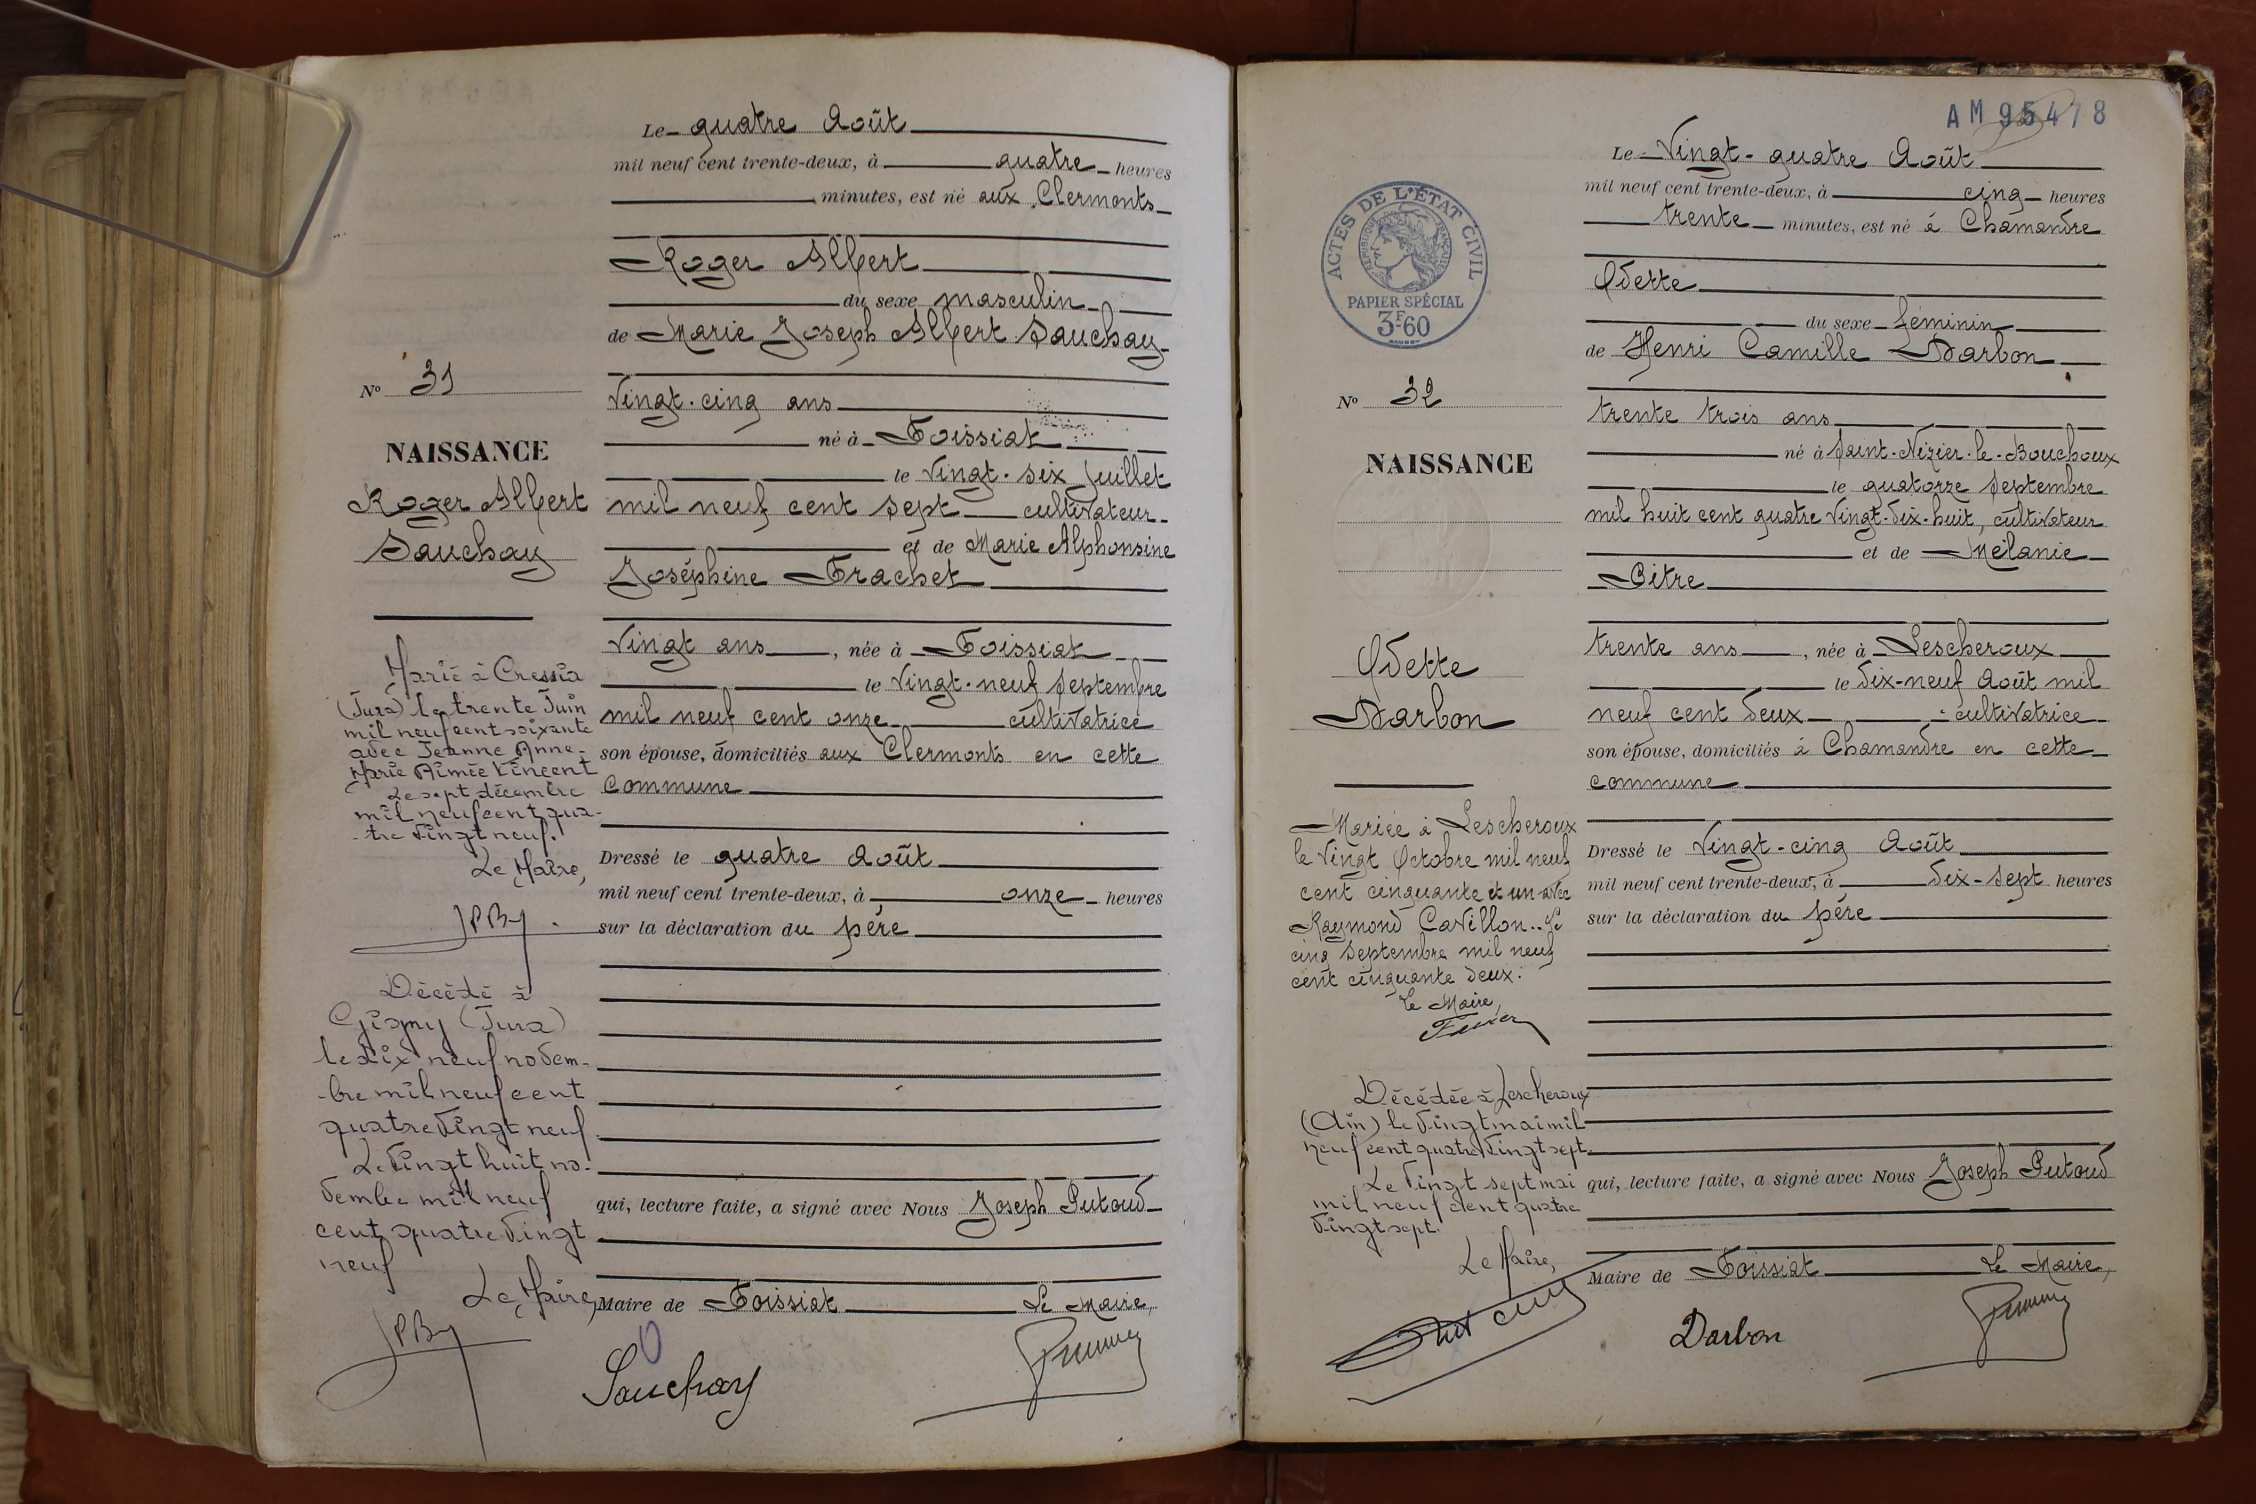 Le quatre Août
mil neuf cent trente-deux, à quatre heures
minutes, est né aux Clermonts
Roger Albert
du sexe masculin
de Marie Joseph Albert Sauchay
Vingt-cinq ans
né à Foissiat
le Vingt-six Juillet
mil neuf cent sept cultivateur
et de Marie Alphonsine
Joséphine Frachet
Vingt ans, née à Foissiat
le Vingt-neuf Septembre
mil neuf cent onze cultivatrice
son épouse, domiciliés aux Clermonts en cette
commune
Dressé le quatre Août
mil neuf cent trente-deux, à onze heures
sur la déclaration du père
qui, lecture faite, a signé avec Nous Joseph Putoud
Maire de Foissiat Le Maire,
Sauchay
No 31
NAISSANCE
Roger Albert
Sauchay
Marié à Cressia
(Jura) le trente Juin
mil neuf cent soixante
avec Jeanne Anne-
Marie Aimée Vincent
Le sept décembre
mil neuf cent qua-
-tre vingt neuf.
Le Maire,
Décédé à
Gigny (Jura)
le dix neuf novem-
-bre mil neuf cent
quatre vingt neuf
Le vingt huit no-
vembre mil neuf
cent quatre vingt
neuf
Le Maire,
AM 95478
Le Vingt-quatre Août
mil neuf cent trente-deux, à cinq heures
trente minutes, est né à Chamandre
Odette
du sexe féminin
de Henri Camille Darbon
trente trois ans
né à Saint-Nizier-le-Bouchoux
le quatorze Septembre
mil huit cent quatre vingt-dix-huit, cultivateur
et de Mélanie
Bitre
trente ans, née à Lescheroux
le dix-neuf Août mil
neuf cent deux cultivatrice
son épouse, domiciliés à Chamandre en cette
commune
Dressé le Vingt-cinq Août
mil neuf cent trente-deux, à dix-sept heures
sur la déclaration du père
qui, lecture faite, a signé avec Nous Joseph Putoud
Maire de Foissiat Le Maire,
Darbon
ACTES DE L'ÉTAT CIVIL
RÉPUBLIQUE FRANÇAISE
PAPIER SPÉCIAL
3F60
No 32
NAISSANCE
Odette
Darbon
Mariée à Lescheroux
le Vingt Octobre mil neuf
cent cinquante et un avec
Raymond Cavillon.. Le
cinq Septembre mil neuf
cent cinquante deux.
Le Maire,
Décédée à Lescheroux
(Ain) le vingt mai mil
neuf cent quatre vingt sept.
Le vingt sept mai
mil neuf cent quatre
vingt sept.
Le Maire,